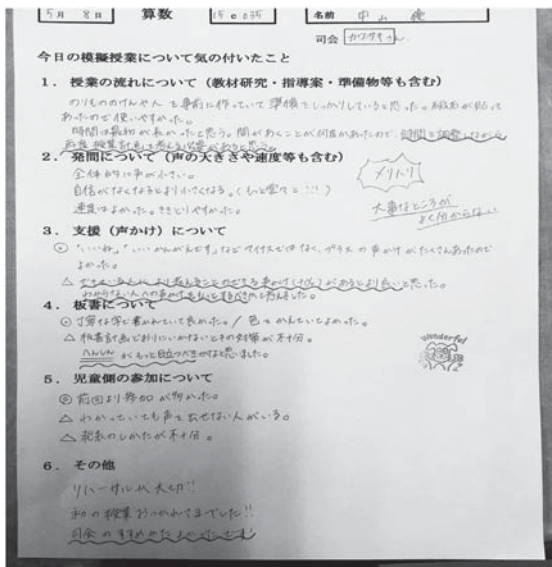 5月 8日 算数 15c035 名前 中山
司会
今日の模擬授業について気の付いたこと
1. 授業の流れについて(教材研究・指導案・準備物等も含む)
のりもの も事前に作っていて準備をしっかりしていると思った。 が貼って
あったので使いやすかった。
時間は最初が長かったと思う。間があくことが何度かあったので、時間を調整しながら
2. 発問について(声の大きさや速度等も含む)
全体的に声が小さい。
自信がなくなるとより小さくなる。(もっと堂々と!!!)
速度はよかった。ききとりやすかった。
メリハリ
大事なところが
よく分からない
3. 支援(声かけ)について
◎ "いいね。" "いいかんがえだす" などマイナスではなく、プラスの声かけがたくさんあったので
よかった。
4. 板書について
◎ 丁寧な字で書かれていて良かった。/ 色もかえていてよかった。
△ 板書計画どおりにいかないときの対策が不十分。
がもっと目立つべきかなと思いました。
wonderful
5. 児童側の参加について
◎ 前回より参加が多かった。
△ わかっていても声を出せない人がいる。
△ のしかたが不十分。
6. その他
リハーサルは大切!!
初の授業おつかれさまでした!!
司会のすすめかたよかったです!